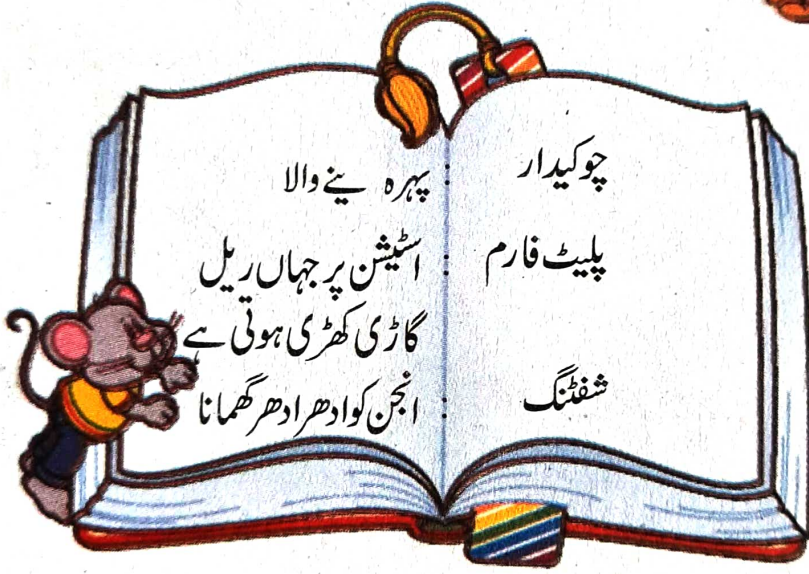 چوکیدار : پہرہ ینے والا
پلیٹ فارم : اسٹیشن پر جہاں ریل
گاڑی کھڑی ہوتی ہے
شفٹنگ : انجن کو ادھر ادھر گھمانا